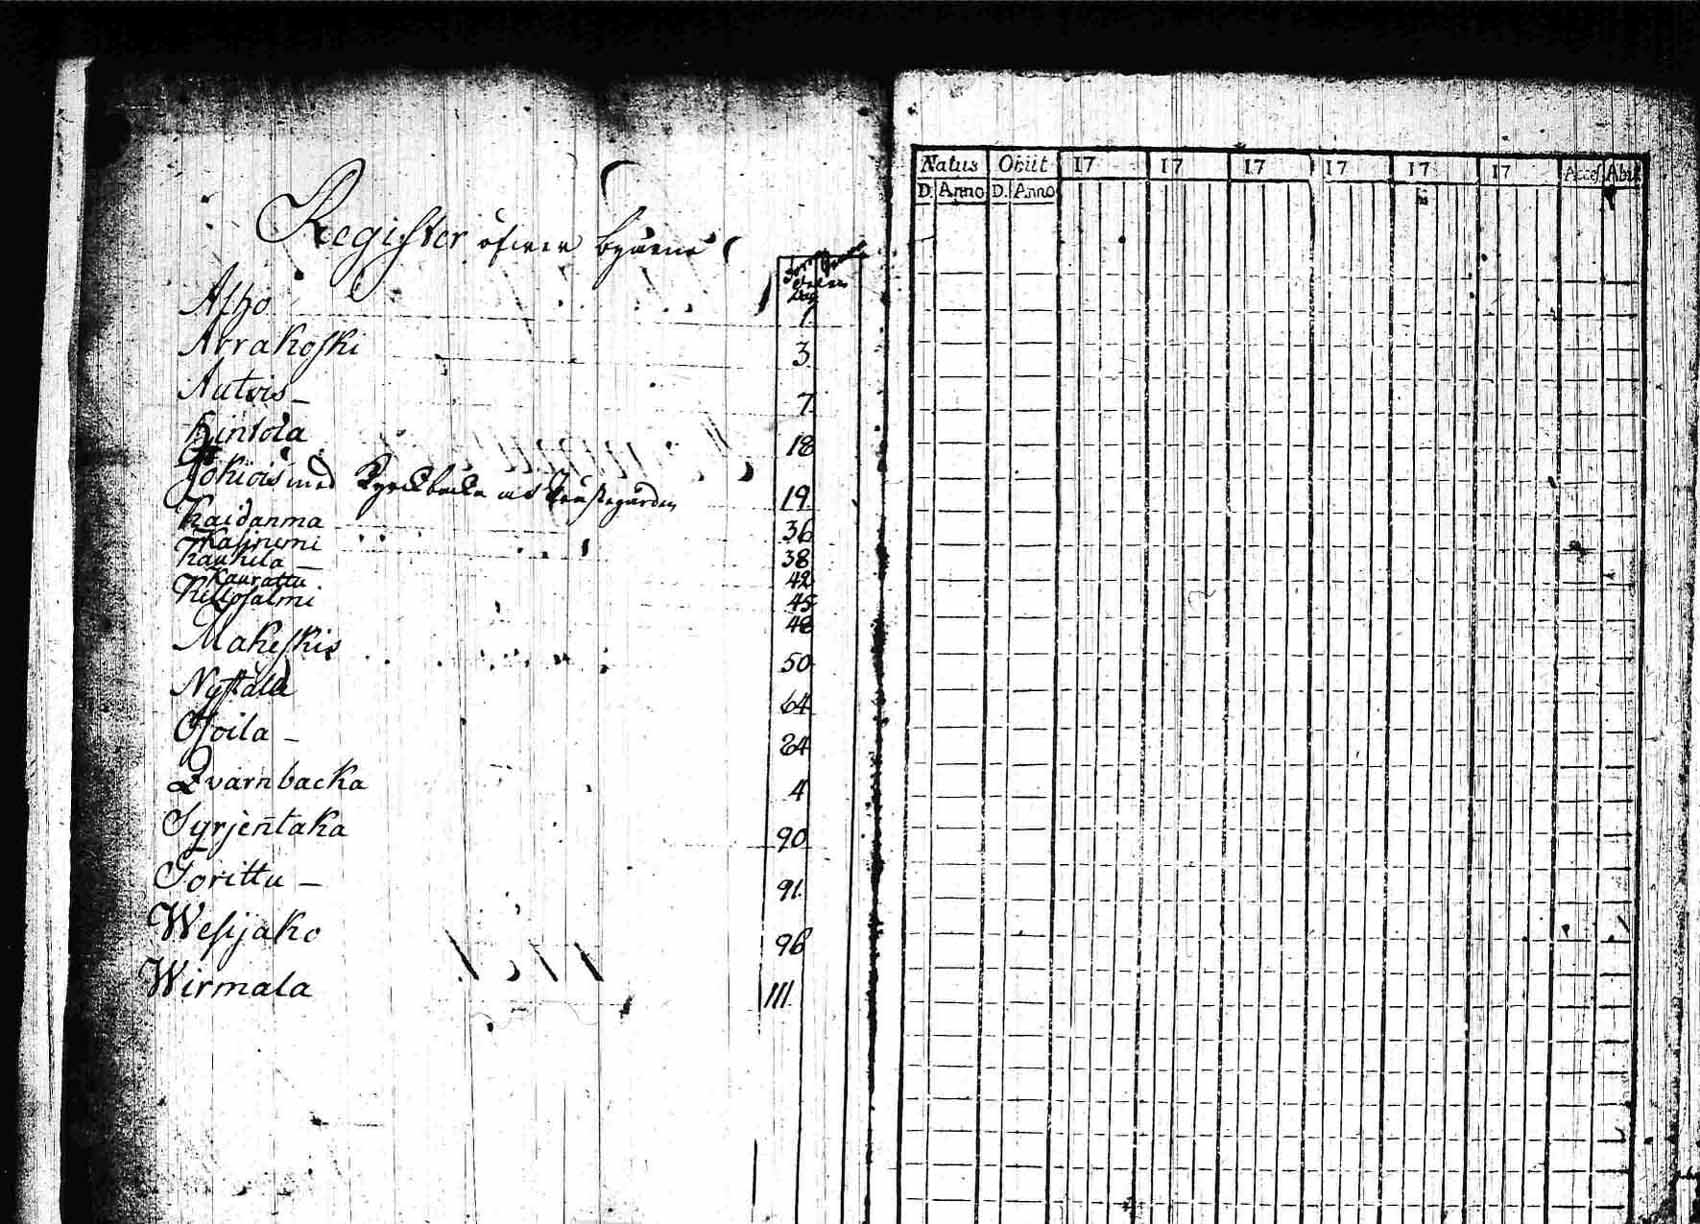 Register öfwer byarne
Alho 1
Arrakoski 3
Autois - 7
Hinkola 18
Jokiois med Kyrckbacka och Prästegården 19
Kaidanma 36
Kasiniemi 38
Kaukela - 42
Kaurattu 45
Kellosalmi 48
Makeskis 50
Nystala 64
Osoila - 84
Qvarnbacka 4
Syrjentaka 90
Torittu - 91
Wesijako 96
Wirmala 111
Natus Obiit 17 17 17 17 17 17 Acces. Abit
D. Anno D. Anno